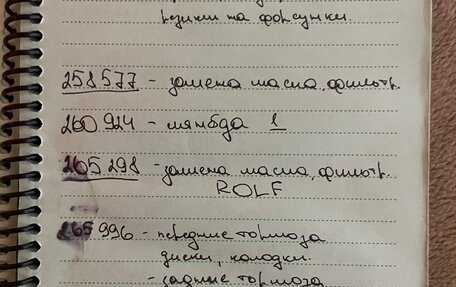 резинки на форсунки.
258577 - замена масла, фильтр.
260924 - лямбда 1
265298 - замена масла, фильтр.
ROLF
265996 - передние тормоза
диски, колодки.
- задние тормоза